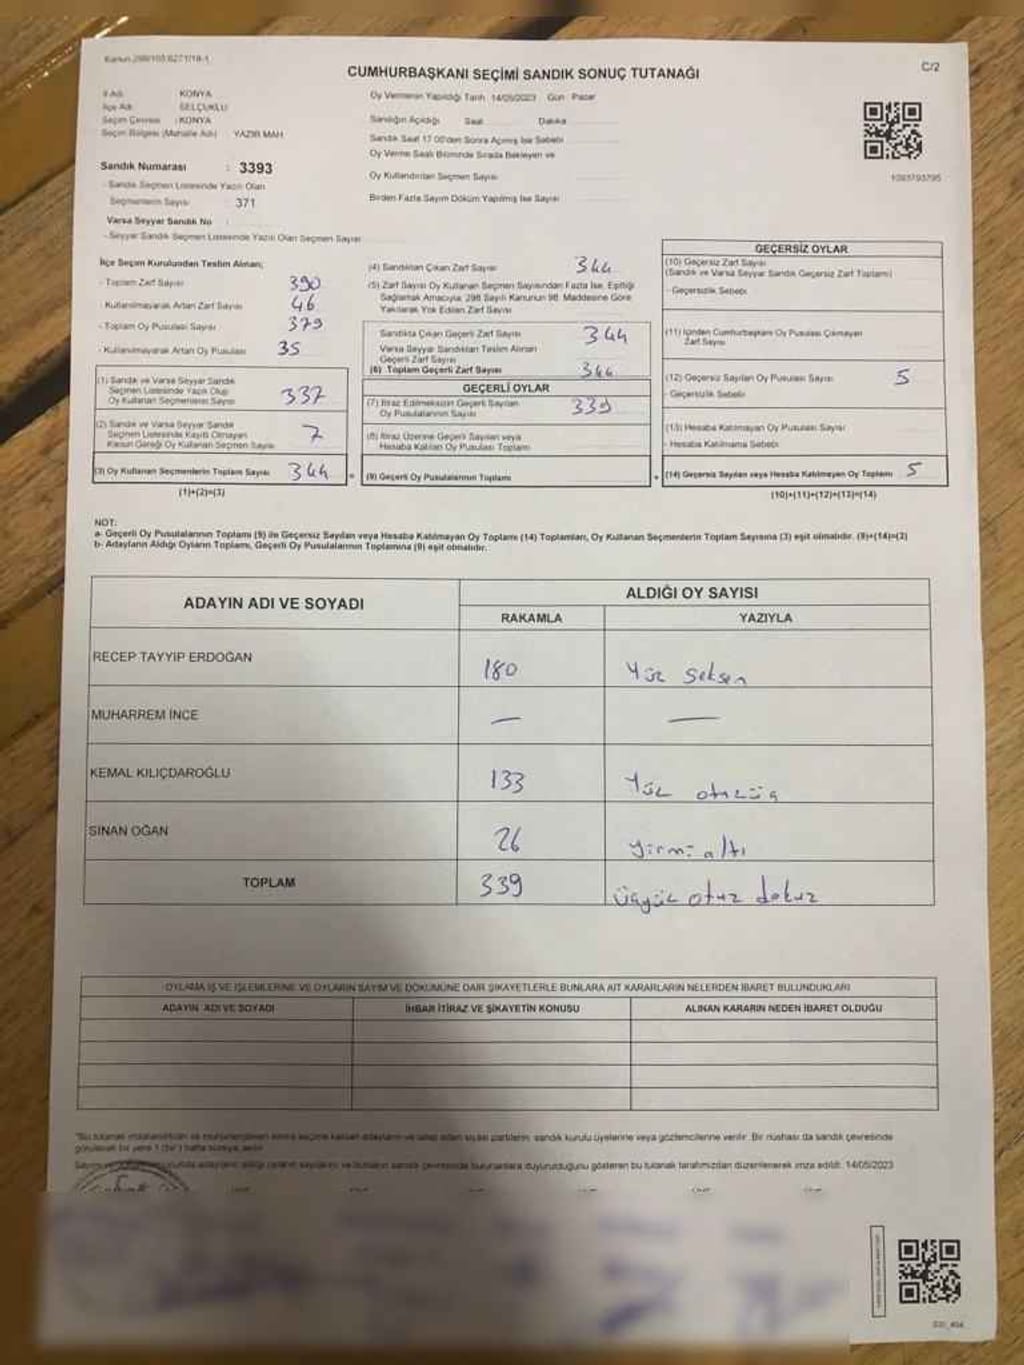 Kanun 298/105;6271/18-1
C/2
CUMHURBAŞKANI SEÇİMİ SANDIK SONUÇ TUTANAĞI
İl Adı : KONYA
İlçe Adı : SELÇUKLU
Seçim Çevresi : KONYA
Seçim Bölgesi (Mahalle Adı) YAZIR MAH
Sandık Numarası : 3393
- Sandık Seçmen Listesinde Yazılı Olan
Seçmenlerin Sayısı : 371
Varsa Seyyar Sandık No :
- Seyyar Sandık Seçmen Listesinde Yazılı Olan Seçmen Sayısı
Oy Vermenin Yapıldığı Tarih 14/05/2023 Gün Pazar
Sandığın Açıldığı Saat Dakika
Sandık Saat 17:00'den Sonra Açılmış İse Sebebi
Oy Verme Saati Bitiminde Sırada Bekleyen ve
Oy Kullandırılan Seçmen Sayısı
Birden Fazla Sayım Döküm Yapılmış İse Sayısı
1093793795
İlçe Seçim Kurulundan Teslim Alınan;
- Toplam Zarf Sayısı 390
- Kullanılmayarak Artan Zarf Sayısı 46
- Toplam Oy Pusulası Sayısı 379
- Kullanılmayarak Artan Oy Pusulası 35
(1) Sandık ve Varsa Seyyar Sandık
Seçmen Listesinde Yazılı Olup
Oy Kullanan Seçmenlerin Sayısı 337
(2) Sandık ve Varsa Seyyar Sandık
Seçmen Listesinde Kayıtlı Olmayan
Kanun Gereği Oy Kullanan Seçmen Sayısı 7
(3) Oy Kullanan Seçmenlerin Toplam Sayısı 344
(1)+(2)=(3)
(4) Sandıktan Çıkan Zarf Sayısı 344
(5) Zarf Sayısı Oy Kullanan Seçmen Sayısından Fazla İse, Eşitliği
Sağlamak Amacıyla, 298 Sayılı Kanunun 98. Maddesine Göre
Yakılarak Yok Edilen Zarf Sayısı
Sandıkta Çıkan Geçerli Zarf Sayısı 344
Varsa Seyyar Sandıktan Teslim Alınan
Geçerli Zarf Sayısı
(6) Toplam Geçerli Zarf Sayısı 344
GEÇERLİ OYLAR
(7) İtiraz Edilmeksizin Geçerli Sayılan
Oy Pusulalarının Sayısı 339
(8) İtiraz Üzerine Geçerli Sayılan veya
Hesaba Katılan Oy Pusulası Toplamı
(9) Geçerli Oy Pusulalarının Toplamı
GEÇERSİZ OYLAR
(10) Geçersiz Zarf Sayısı
(Sandık ve Varsa Seyyar Sandık Geçersiz Zarf Toplamı)
- Geçersizlik Sebebi
(11) İçinden Cumhurbaşkanı Oy Pusulası Çıkmayan
Zarf Sayısı
(12) Geçersiz Sayılan Oy Pusulası Sayısı 5
- Geçersizlik Sebebi
(13) Hesaba Katılmayan Oy Pusulası Sayısı
- Hesaba Katılmama Sebebi
(14) Geçersiz Sayılan veya Hesaba Katılmayan Oy Toplamı 5
(10)+(11)+(12)+(13)=(14)
NOT:
a- Geçerli Oy Pusulalarının Toplamı (9) ile Geçersiz Sayılan veya Hesaba Katılmayan Oy Toplamı (14) Toplamları, Oy Kullanan Seçmenlerin Toplam Sayısına (3) eşit olmalıdır. (9)+(14)=(3)
b- Adayların Aldığı Oyların Toplamı, Geçerli Oy Pusulalarının Toplamına (9) eşit olmalıdır.
ADAYIN ADI VE SOYADI
ALDIĞI OY SAYISI
RAKAMLA YAZIYLA
RECEP TAYYİP ERDOĞAN 180 Yüz seksen
MUHARREM İNCE — —
KEMAL KILIÇDAROĞLU 133 Yüz otuzüç
SİNAN OĞAN 26 yirmi altı
TOPLAM 339 üçyüz otuz dokuz
OYLAMA İŞ VE İŞLEMLERİNE VE OYLARIN SAYIM VE DÖKÜMÜNE DAİR ŞİKAYETLERLE BUNLARA AİT KARARLARIN NELERDEN İBARET BULUNDUKLARI
ADAYIN ADI VE SOYADI İHBAR İTİRAZ VE ŞİKAYETİN KONUSU ALINAN KARARIN NEDEN İBARET OLDUĞU
sandık kurulu üyelerine veya gözlemcilerine verilir. Bir nüshası da sandık çevresinde
bu tutanak tarafımızdan düzenlenerek imza edildi. 14/05/2023